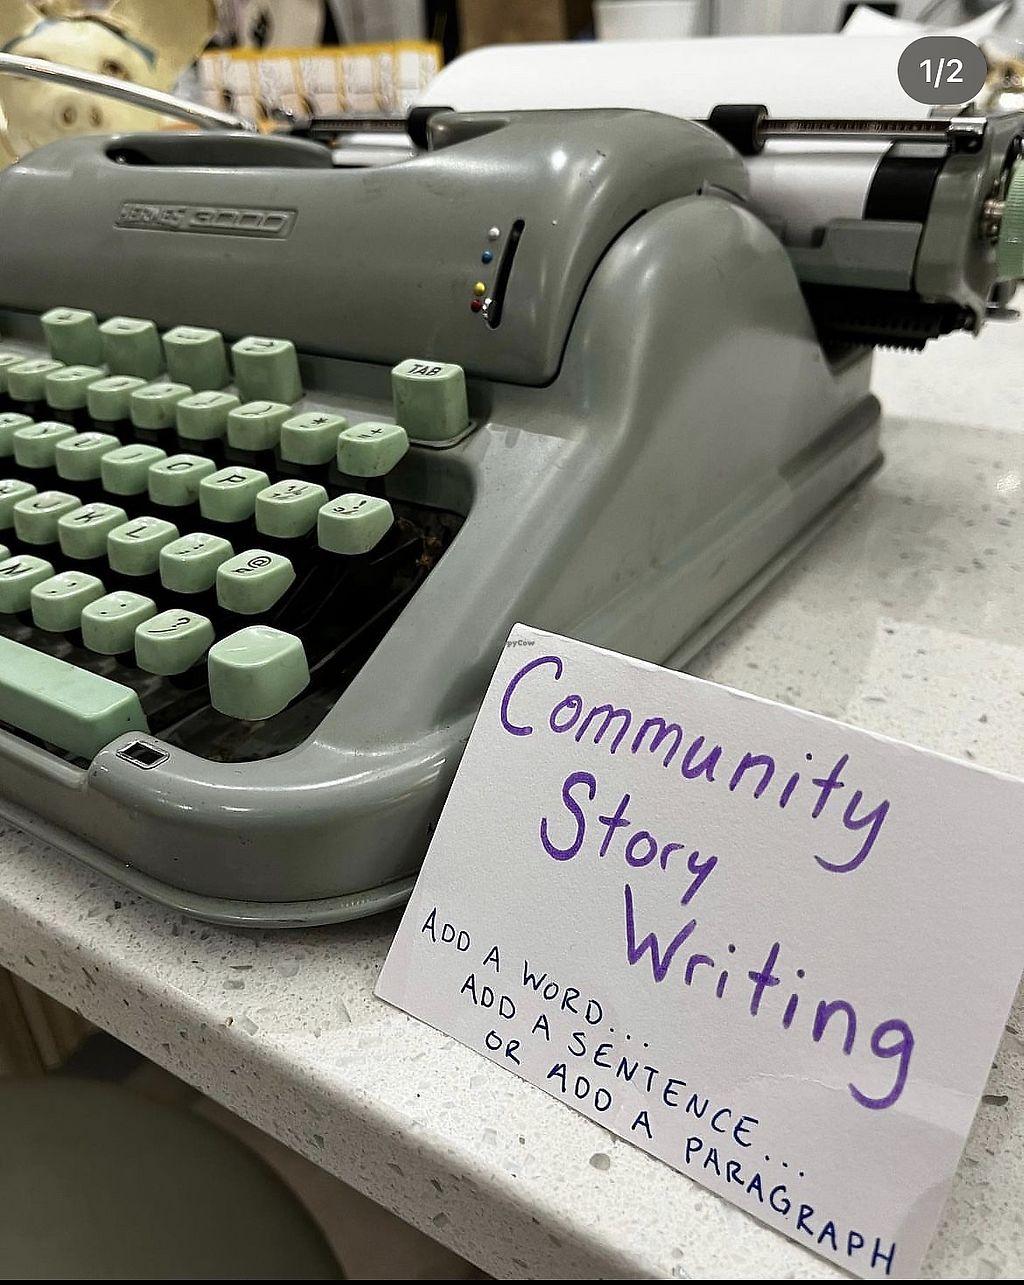 1/2
HERMES 3000
TAB
P
J K L
M
@
pyCow
Community
Story
Writing
ADD A WORD...
ADD A SENTENCE...
OR ADD A PARAGRAPH